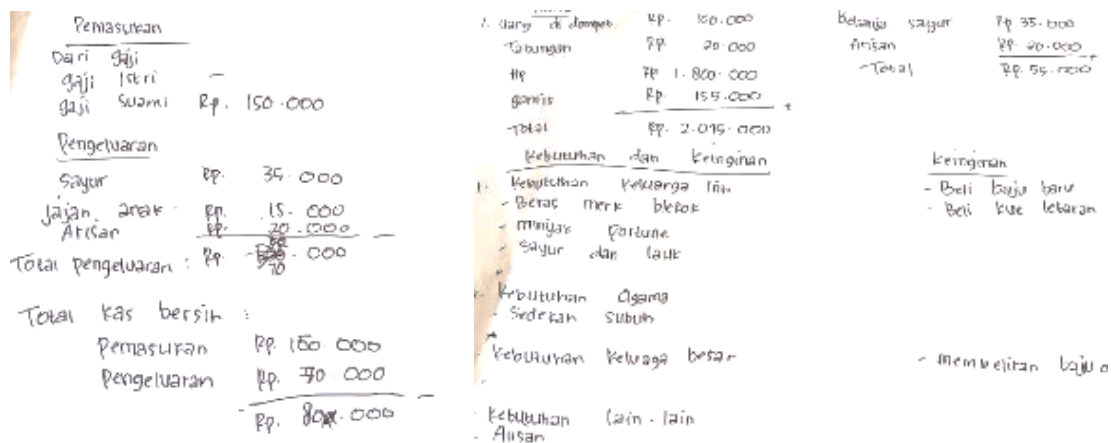 Pemasukan
Dari gaji
gaji Istri -
gaji Suami Rp. 150.000
Pengeluaran
Sayur Rp. 35.000
Jajan anak Rp. 15.000
Arisan Rp. 20.000
Total pengeluaran : Rp. 70.000
Total kas bersih :
Pemasukan Rp. 150.000
Pengeluaran Rp. 70.000
Rp. 80.000
1. Uang di dompet Rp. 160.000
Tabungan Rp 20.000
Hp Rp 1.800.000
gamis Rp. 155.000
Total Rp. 2.075.000
Kebutuhan dan Keinginan
1. Kebutuhan Keluarga Inti
- Beras merk
- minyak Fortune
- Sayur dan lauk
Kebutuhan Agama
- Sedekah Subuh
Kebutuhan Keluaga besar
Kebutuhan lain-lain
- Arisan
Belanja sayur Rp 35.000
Arisan Rp. 20.000
-Total Rp. 55.000
Keinginan
- Beli baju baru
- Beli kue lebaran
- membelikan baju